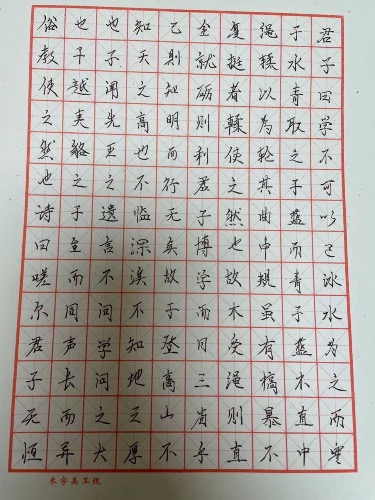 君子曰学不可以已冰水为之而寒
于水青取之于蓝而青于蓝木直中
绳輮以为轮其曲中规虽有槁暴不
复挺者輮使之然也故木受绳则直
金就砺则利君子博学而日三省乎
己则知明而行无矣故于登高山不
知天之高也不临深溪不知地之厚
也子闻先王之遗言不问学问之大
也干越夷貉之子至而同声长而异
俗教使之然也诗曰嗟尔君子无恒
米字美工纸